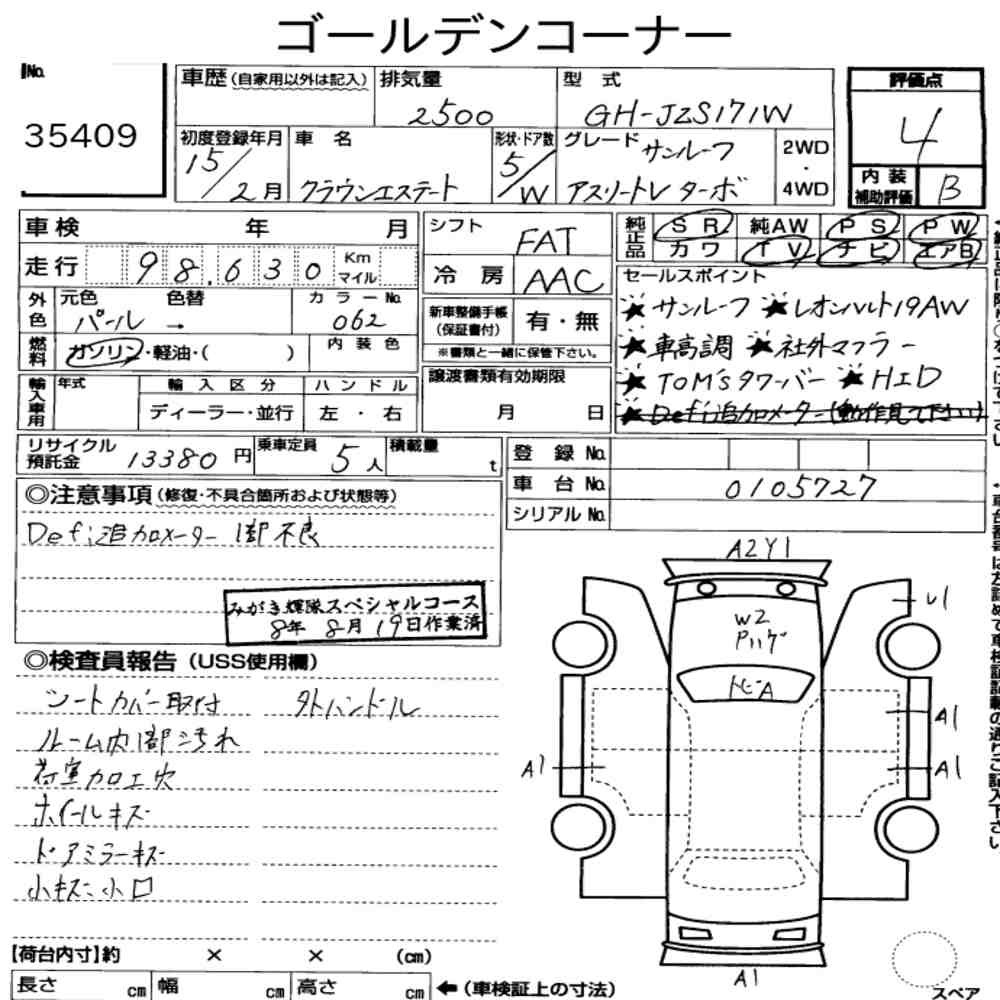 ゴールデンコーナー
No.
35409
車歴(自家用以外は記入)
排気量
2500
型式
GH-JZS171W
評価点
4
内装
補助評価
B
初度登録年月
15/2月
車名
クラウンエステート
形状・ドア数
5/W
グレード サンルーフ
アスリートV ターボ
2WD
・
4WD
車検 年 月
走行 98,630 Km
マイル
外色
元色 色替
パール →
カラーNo.
062
燃料
ガソリン・軽油・( )
内装色
輸入車用
年式
輸入区分
ディーラー・並行
ハンドル
左・右
シフト
FAT
冷房
AAC
新車整備手帳
(保証書付)
有・無
※書類と一緒に保管下さい。
譲渡書類有効期限
月 日
純正品
SR 純AW PS PW
カワ TV ナビ エアB
セールスポイント
★サンルーフ ★レオンハルト19AW
★車高調 ★社外マフラー
★TOM'Sタワーバー ★HID
★Defi追加メーター(動作見て下さい)
リサイクル
預託金
13380円
乗車定員
5人
積載量
t
登録No.
車台No.
0105727
シリアルNo.
◎注意事項(修復・不具合箇所および状態等)
Defi追加メーター 1部不良
みがき輝隊スペシャルコース
8年 8月 19日作業済
◎検査員報告(USS使用欄)
シートカバー取付 外ハンドル
ルーム内1部汚れ
荷室加工穴
ホイールキズ
ドアミラーキズ
小キズ小凹
A2Y1
W2
Pハゲ
トビA
U1
A1
A1
A1
A1
スペア
【荷台内寸】約 × × (cm)
長さ cm 幅 cm 高さ cm
←(車検証上の寸法)